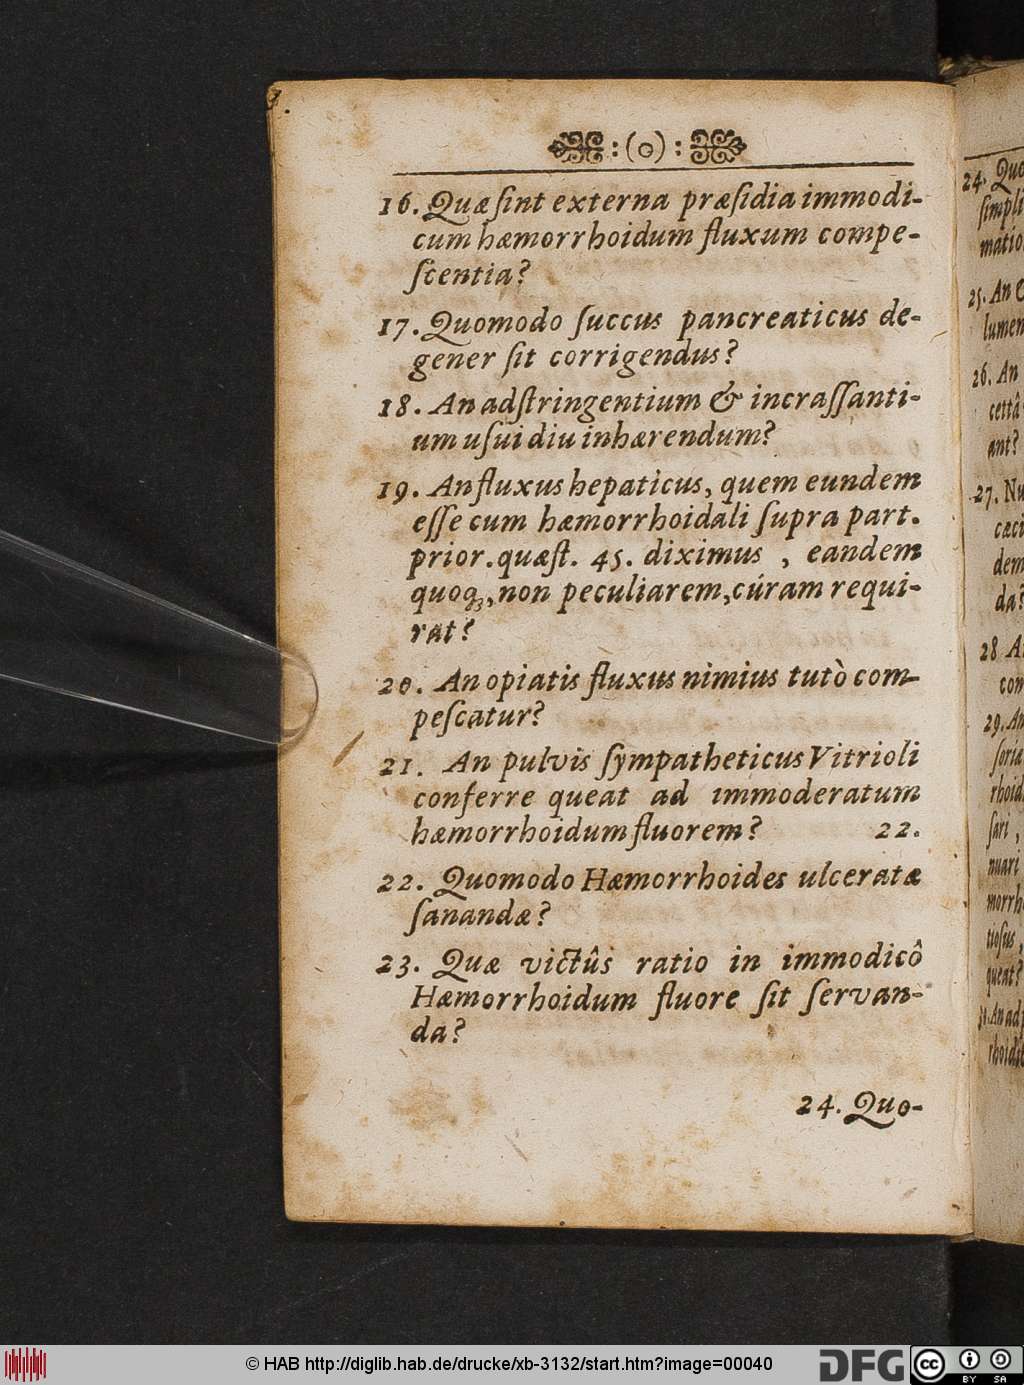 :(o):
16. Quæ ſint externa præſidia immodi-
cum hæmorrhoidum fluxum compe-
ſcentia?
17. Quomodo ſuccus pancreaticus de-
gener ſit corrigendus?
18. An adſtringentium & incraſſanti-
um uſui diu inhærendum?
19. An fluxus hepaticus, quem eundem
eſſe cum hæmorrhoidali ſupra part.
prior. quæſt. 45. diximus, eandem
quoqꝫ, non peculiarem, cúram requi-
rat?
20. An opiatis fluxus nimius tutò com-
peſcatur?
21. An pulvis ſympatheticus Vitrioli
conferre queat ad immoderatum
hæmorrhoidum fluorem? 22.
22. Quomodo Hæmorrhoides ulceratæ
ſanandæ?
23. Quæ victûs ratio in immodicô
Hæmorrhoidum fluore ſit ſervan-
da?
24. Quo-
24. Quo
ſimpli
matio
25. An &
lumen
26. An
cettâ
ant?
27. Nu
cæci
dem
da?
28 A
con
29. An
ſoriæ
rhoid
ſari,
nuari
morrh
tioſus,
queat?
An ad
rhoid
© HAB http://diglib.hab.de/drucke/xb-3132/start.htm?image=00040
DFG
cc BY SA